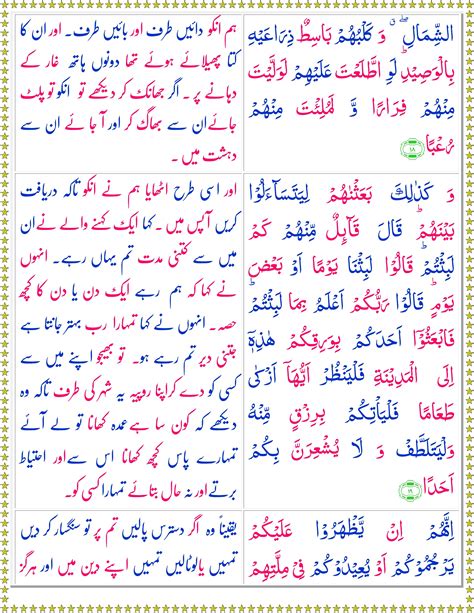 الشِّمَالِ ۖۗ وَ كَلْبُهُمْ بَاسِطٌ ذِرَاعَيْهِ
بِالْوَصِيْدِ ؕ لَوِ اطَّلَعْتَ عَلَيْهِمْ لَوَلَّيْتَ
مِنْهُمْ فِرَارًا وَّ لَمُلِئْتَ مِنْهُمْ
رُعْبًا ۱۸
ہم انکو دائیں طرف اور بائیں طرف۔ اور ان کا
کتا پھیلائے ہوئے تھا دونوں ہاتھ غار کے
دہانے پر ۔ اگر جھانک کر دیکھے تو انکو تو پلٹ
جائے ان سے بھاگ کر اور آ جائے ان سے
دہشت میں ۔
وَ كَذٰلِكَ بَعَثْنٰهُمْ لِيَتَسَآءَلُوْا
بَيْنَهُمْ ؕ قَالَ قَآىِٕلٌ مِّنْهُمْ كَمْ
لَبِثْتُمْ ؕ قَالُوْا لَبِثْنَا يَوْمًا اَوْ بَعْضَ
يَوْمٍ ؕ قَالُوْا رَبُّكُمْ اَعْلَمُ بِمَا لَبِثْتُمْ ؕ
فَابْعَثُوْۤا اَحَدَكُمْ بِوَرِقِكُمْ هٰذِهٖۤ
اِلَى الْمَدِيْنَةِ فَلْيَنْظُرْ اَيُّهَاۤ اَزْكٰى
طَعَامًا فَلْيَاْتِكُمْ بِرِزْقٍ مِّنْهُ
وَلْيَتَلَطَّفْ وَ لَا يُشْعِرَنَّ بِكُمْ
اَحَدًا ۱۹
اور اسی طرح اٹھایا ہم نے انکو تاکہ دریافت
کریں آپس میں ۔ کہا ایک کہنے والے نے ان
میں سے کتنی مدت تم یہاں رہے۔ انہوں
نے کہا کہ ہم رہے ایک دن یا دن کا کچھ
حصہ۔ انہوں نے کہا تمہارا رب بہتر جانتا ہے
جتنی دیر تم رہے ہو۔ تو بھیجو اپنے میں سے
کسی کو دے کر اپنا روپیہ یہ شہر کی طرف تاکہ وہ
دیکھے کہ کون سا ہے عمدہ کھانا تو لے آئے
تمہارے پاس کچھ کھانا اس سے اور احتیاط
برتے اور نہ حال بتائے تمہارا کسی کو۔
اِنَّهُمْ اِنْ يَّظْهَرُوْا عَلَيْكُمْ
يَرْجُمُوْكُمْ اَوْ يُعِيْدُوْكُمْ فِيْ مِلَّتِهِمْ
یقیناً وہ اگر دسترس پالیں تم پر تو سنگسار کر دیں
تمہیں یا لوٹالیں تمہیں اپنے دین میں اور ہرگز